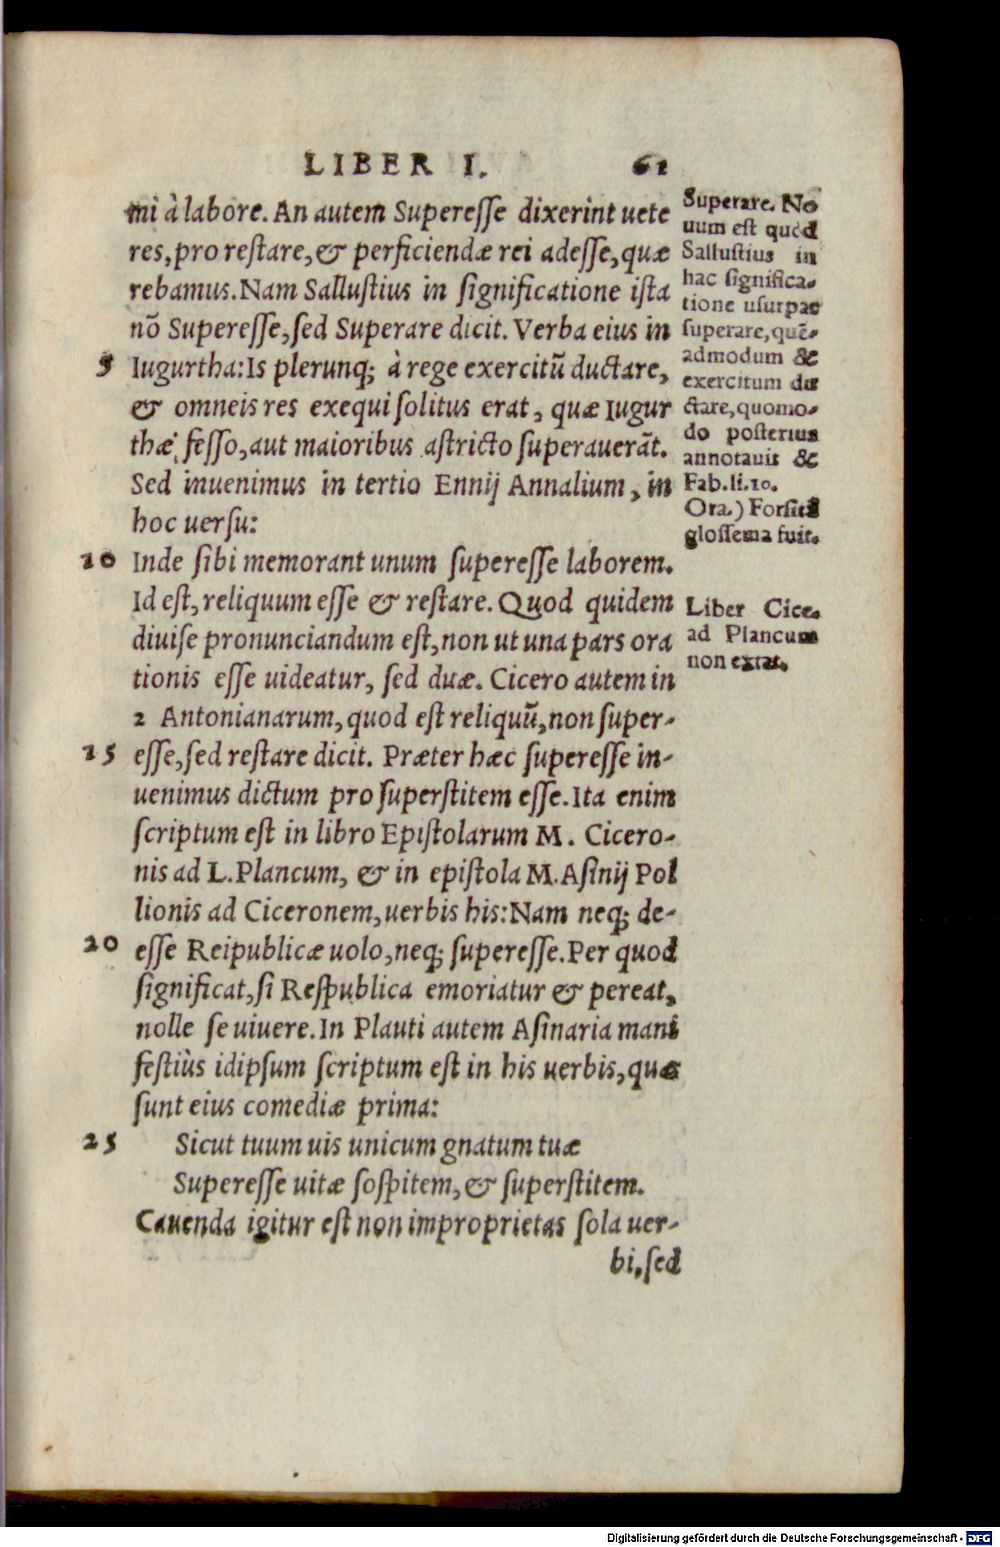 LIBER I. 61
mi à labore. An autem Superesse dixerint uete
res, pro restare, & perficiendæ rei adesse, quæ
rebamus. Nam Sallustius in significatione ista
nō Superesse, sed Superare dicit. Verba eius in
5 Iugurtha: Is plerunq; à rege exercitū ductare,
& omneis res exequi solitus erat, quæ Iugur
thæ fesso, aut maioribus astricto superauerāt.
Sed inuenimus in tertio Ennij Annalium, in
hoc uersu:
10 Inde sibi memorant unum superesse laborem.
Id est, reliquum esse & restare. Quod quidem
diuise pronunciandum est, non ut una pars ora
tionis esse uideatur, sed duæ. Cicero autem in
2 Antonianarum, quod est reliquū, non super-
15 esse, sed restare dicit. Præter hæc superesse in-
uenimus dictum pro superstitem esse. Ita enim
scriptum est in libro Epistolarum M. Cicero-
nis ad L. Plancum, & in epistola M. Asinij Pol
lionis ad Ciceronem, uerbis his: Nam neq; de-
20 esse Reipublicæ uolo, neq; superesse. Per quod
significat, si Respublica emoriatur & pereat,
nolle se uiuere. In Plauti autem Asinaria mani
festiùs idipsum scriptum est in his uerbis, quæ
sunt eius comediæ prima:
25 Sicut tuum uis unicum gnatum tuæ
Superesse uitæ sospitem, & superstitem.
Cauenda igitur est non improprietas sola uer-
bi, sed
Superare. No
uum est quod
Sallustius in
hac significa-
tione usurpat
superare, quē-
admodum &
exercitum du
ctare, quomo-
do posterius
annotauit &
Fab. li. 10.
Ora.) Forsitā
glossema fuit.
Liber Cice.
ad Plancum
non extat.
Digitalisierung gefördert durch die Deutsche Forschungsgemeinschaft - DFG